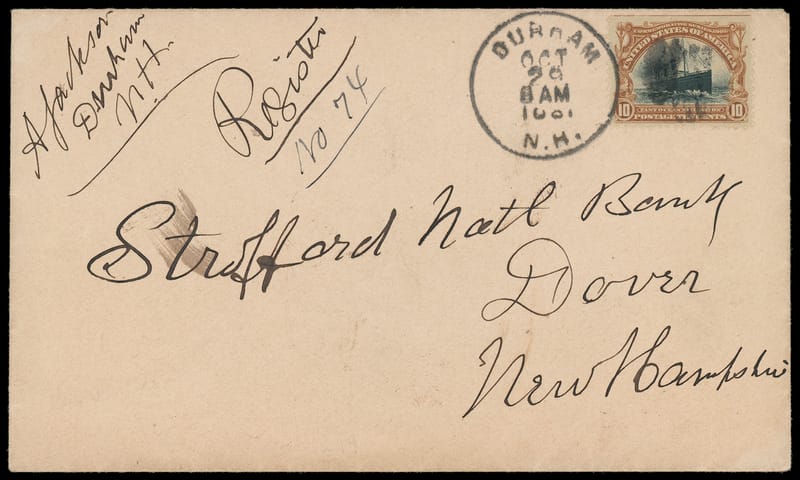 A Jackson
Durham
N.H.
Register
No 74
DURHAM
OCT
29
8 AM
N.H.
UNITED STATES OF AMERICA
10
10
POSTAGE TEN CENTS
Strafford Natl Bank
Dover
New Hampshire